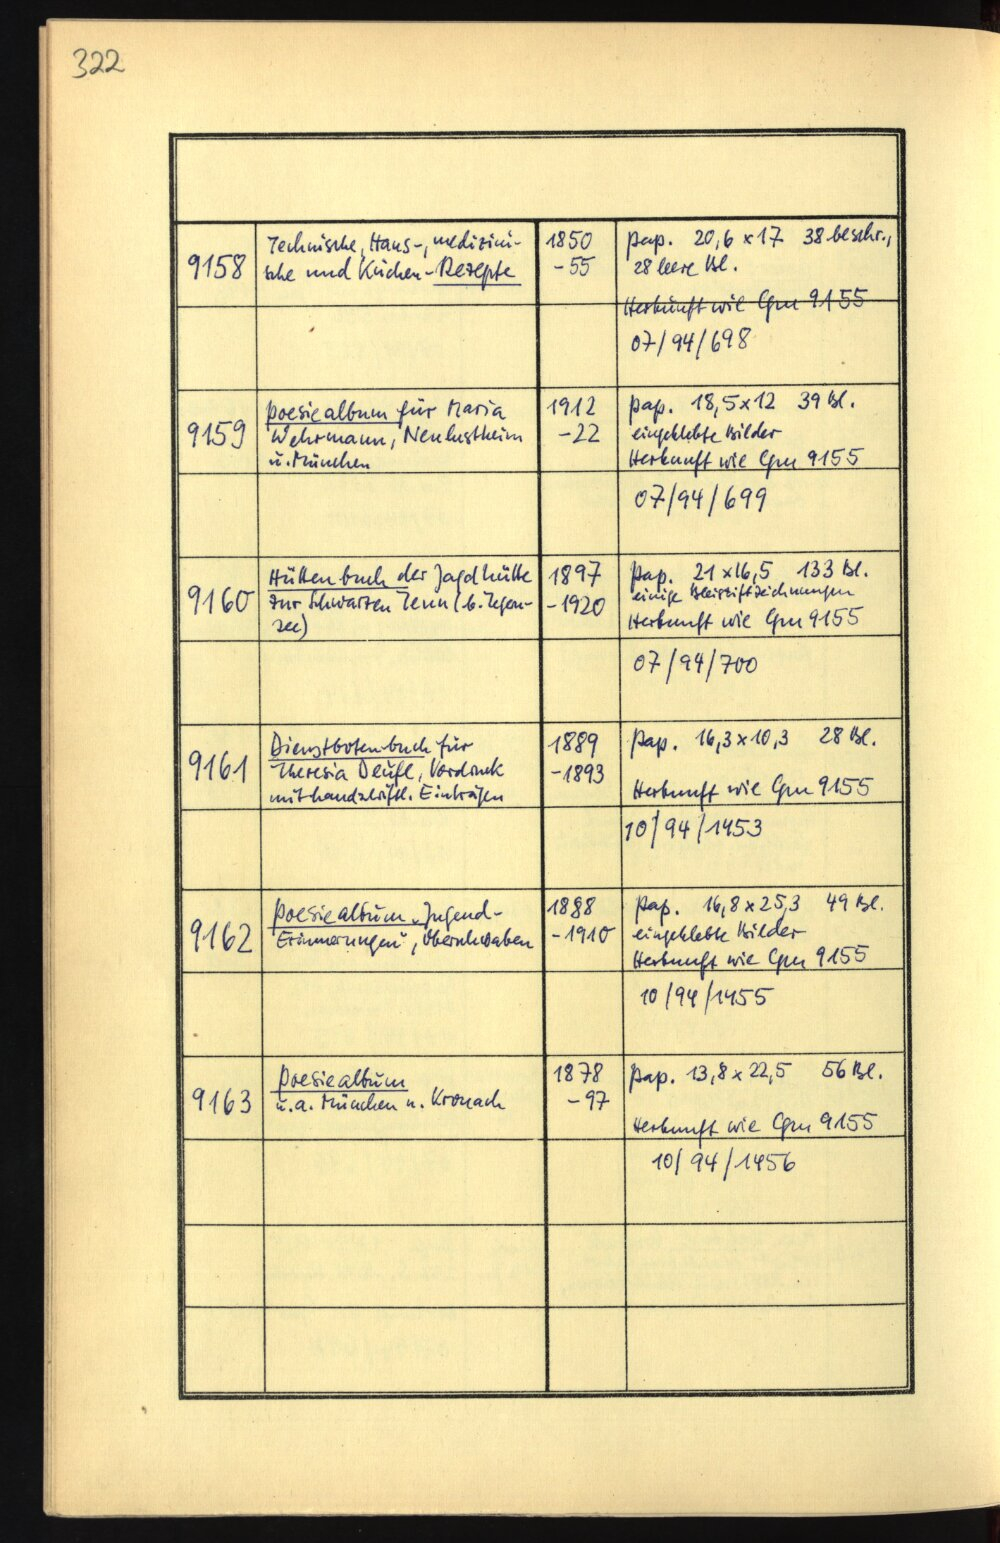 322
9158
Technische, Haus-, medizini-
sche und Küchen-Rezepte
1850
-55
Pap. 20,6 x 17 38 beschr.,
28 leere Bl.
Herkunft wie Cgm 9155
07/94/698
9159
Poesiealbum für Maria
Wehrmann, Neulustheim
u. München
1912
-22
Pap. 18,5 x 12 39 Bl.
eingeklebte Bilder
Herkunft wie Cgm 9155
07/94/699
9160
Hüttenbuch der Jagdhütte
zur Schwarzen Tenn (b. Tegern-
see)
1897
-1920
Pap. 21 x 16,5 133 Bl.
einige Bleistiftzeichnungen
Herkunft wie Cgm 9155
07/94/700
9161
Dienstbotenbuch für
Theresia Deufl, Vordruck
mit handschriftl. Einträgen
1889
-1893
Pap. 16,3 x 10,3 28 Bl.
Herkunft wie Cgm 9155
10/94/1453
9162
Poesiealbum „Jugend-
Erinnerungen", Oberschwaben
1888
-1910
Pap. 16,8 x 25,3 49 Bl.
eingeklebte Bilder
Herkunft wie Cgm 9155
10/94/1455
9163
Poesiealbum
u.a. München u. Kronach
1878
-97
Pap. 13,8 x 22,5 56 Bl.
Herkunft wie Cgm 9155
10/94/1456